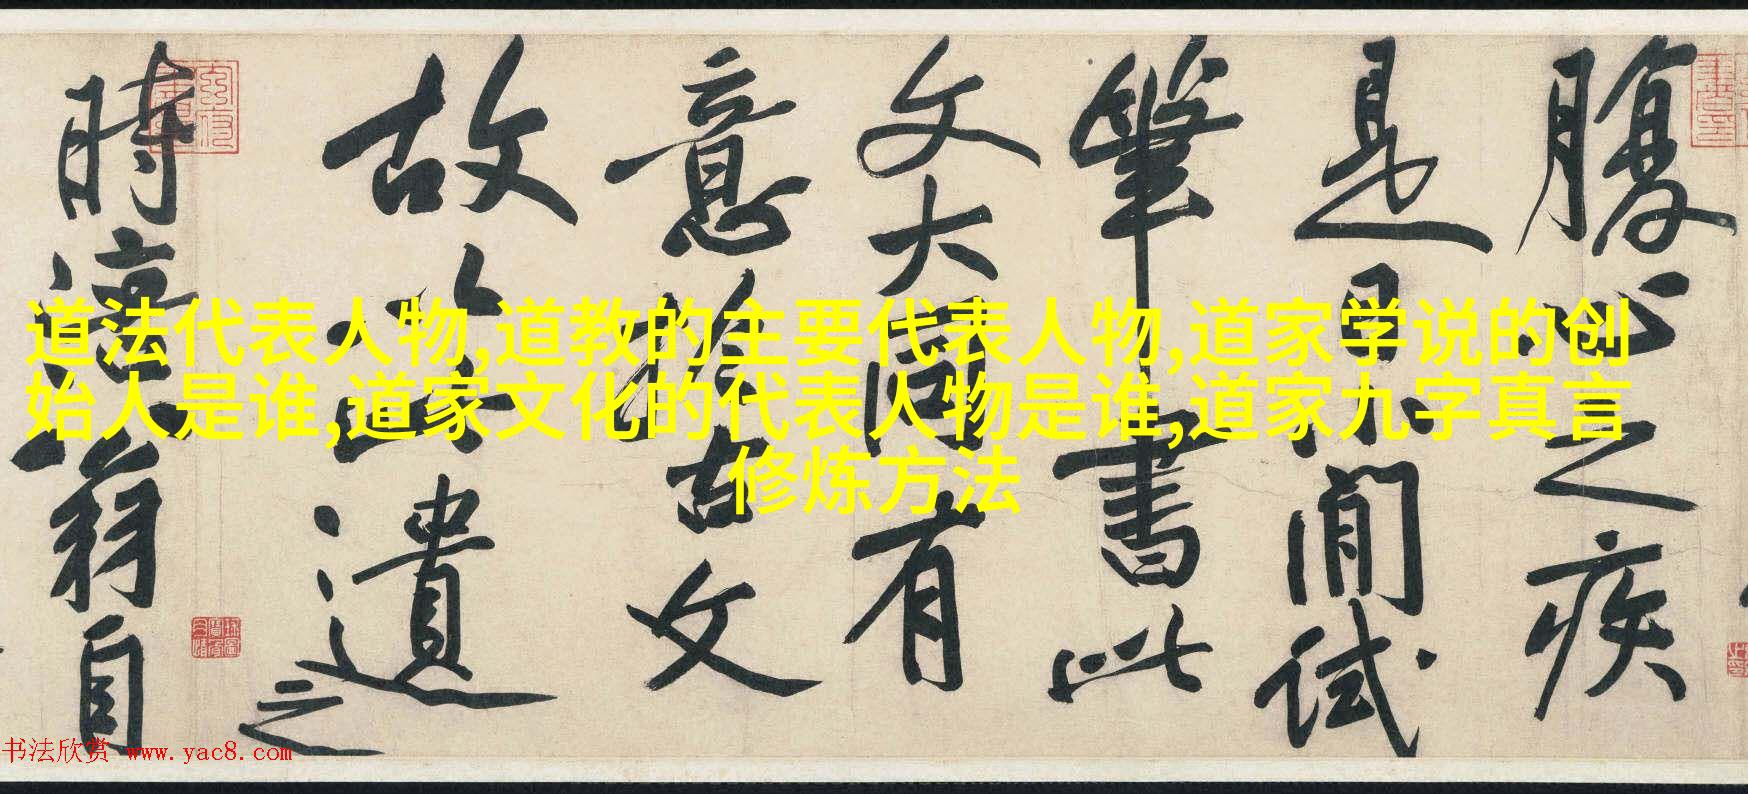 腹心之疾
是日闲試
筆此書此
文大同有
意拾古文
故以此遺之
時涪翁自
道法代表人物,道教的主要代表人物,道家学说的创
始人是谁,道家文化的代表人物是谁,道家九字真言
修炼方法
书法欣赏 www.yac8.com